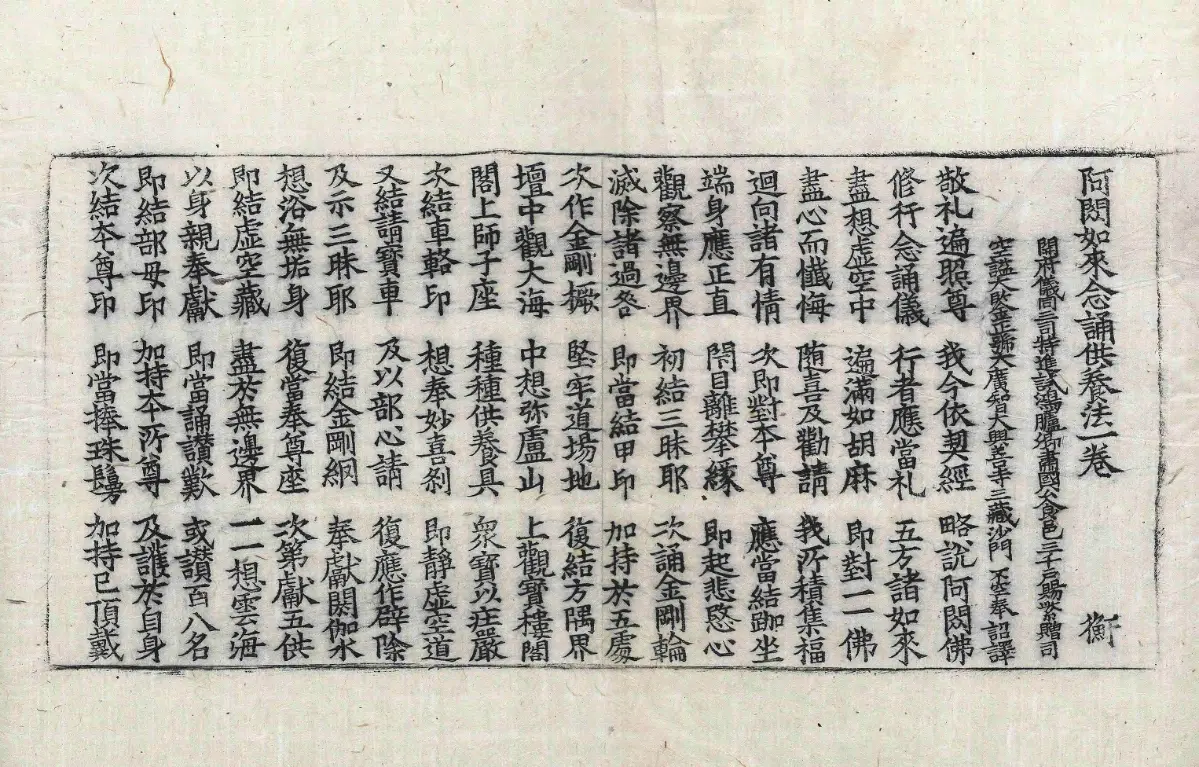 阿閦如來念誦供養法一卷 衡
開府儀同三司特進試鴻臚卿肅國公食邑三千戶賜紫贈司
空謚大鑒正號大廣智大興善寺三藏沙門 不空奉 詔譯
敬礼遍照尊 我今依契經 略說阿閦佛
修行念誦儀 行者應當礼 五方諸如來
盡想虛空中 遍滿如胡麻 即對一一佛
盡心而懺悔 随喜及勸請 我所積集福
迴向諸有情 次即對本尊 應當結跏坐
端身應正直 閇目離攀縁 即起悲愍心
觀察無邊界 初結三昧耶 次誦金剛輪
滅除諸過咎 即當結甲印 加持於五處
次作金剛橛 堅牢道場地 復結方隅界
壇中觀大海 中想弥盧山 上觀寶樓閣
閣上師子座 種種供養具 衆寶以莊嚴
次結車輅印 想奉妙喜剎 即靜虛空道
又結請寶車 及以部心請 復應作辟除
及示三昧耶 即結金剛網 奉獻閼伽水
想浴無垢身 復當奉尊座 次第獻五供
即結虛空藏 盡於無邊界 一一想雲海
以身親奉獻 即當誦讚歎 或讚百八名
即結部母印 加持本所尊 及護於自身
次結本尊印 即當捧珠鬘 加持已頂戴